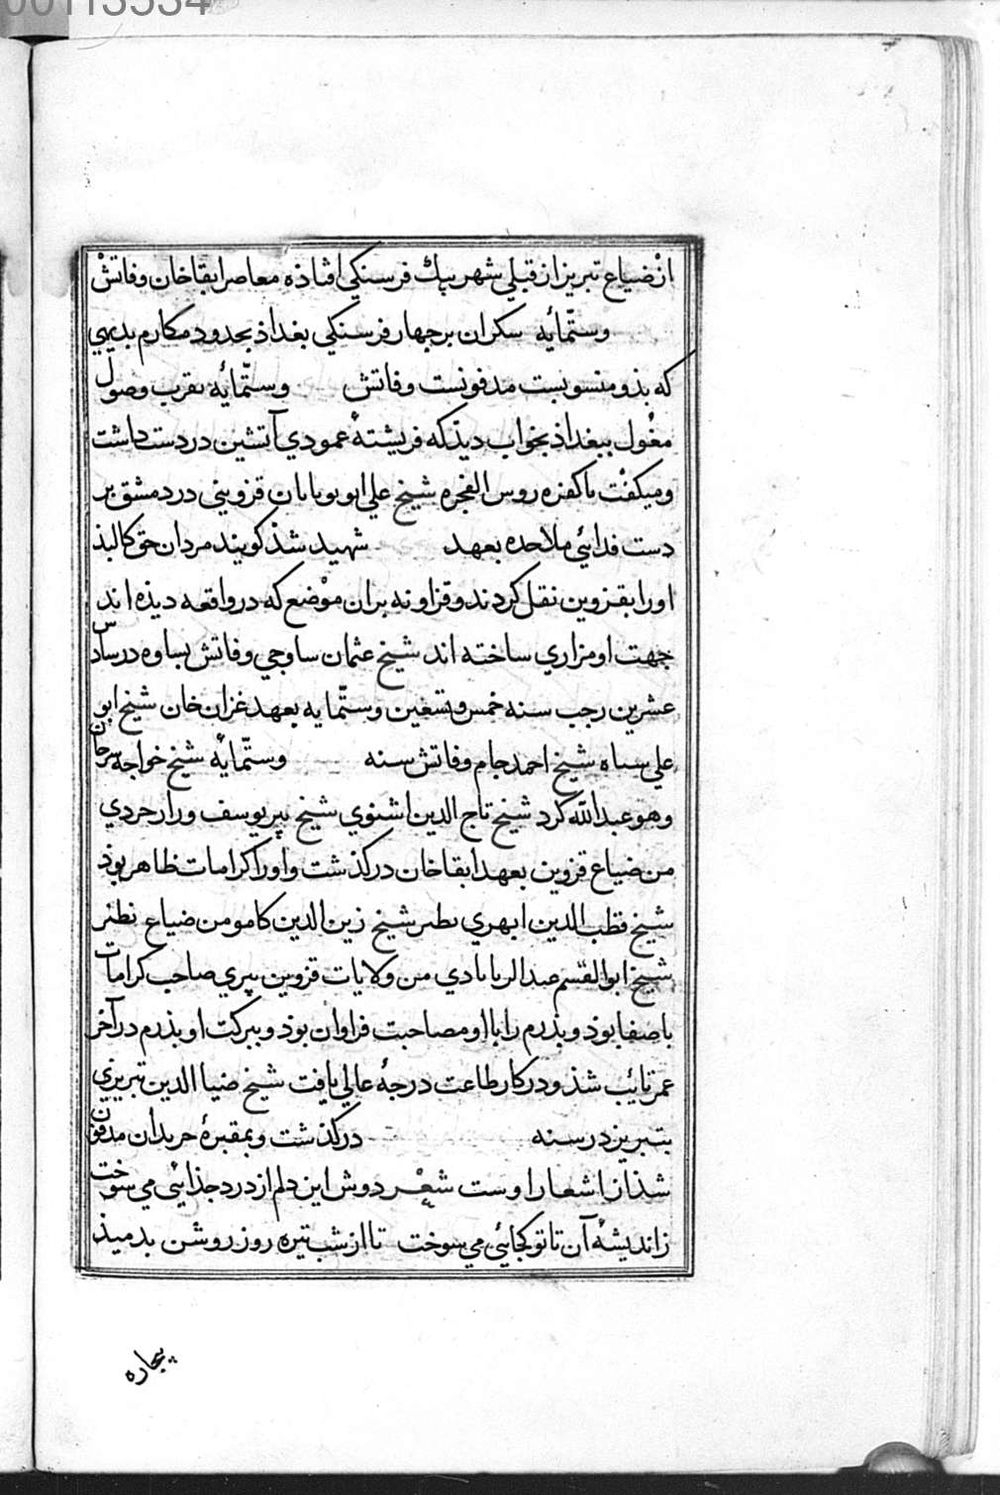 00113534
از ضیاع تبریز از قبلی شهر بیك فرسنکی افتاذه معاصر ابقاخان وفاتش
وستّمائه سکران بر چهار فرسنکی بغداذ بحدود مکارم بدیهی
که بذو منسوبست مدفونست وفاتش وستّمائه بقرب وصول
مغول ببغداذ بخواب دیذ که فریشتهٔ عمودی آتشین در دست داشت
ومیکفت یا کفره روس الفجره شیخ علی ابویابان قزوینی در دمشق بر
دست فدائی ملاحده بعهد شهید شذ کویند مردان حق کالبذ
اورا بقزوین نقل کردند وقزاونه بران موضع که در واقعه دیذه اند
جهت او مزاری ساخته اند شیخ عثمان ساوجی وفاتش بساوه در سادس
عشرین رجب سنه خمس وتسعین وستّمایه بعهد غزان خان شیخ ابو
علی سیاه شیخ احمد جام وفاتش سنه وستّمایه شیخ خواجه سرجان
وهو عبدالله کرد شیخ تاج الدین اشنوی شیخ پیر یوسف ورارجردی
من ضیاع قزوین بعهد ابقاخان درکذشت واورا کرامات ظاهر بوذ
شیخ قطب الدین ابهری نطنر شیخ زین الدین کامو من ضیاع نطنر
شیخ ابوالقسم عبدالربابادی من ولایات قزوین پیری صاحب کرامات
باصفا بوذ وبذرم را با او مصاحبت فراوان بوذ وببرکت او بذرم در آخر
عمر تایب شذ ودر کار طاعت درجهٔ عالی یافت شیخ ضیا الدین تبریزی
بتبریز در سنه درکذشت وبمقبرهٔ حریدان مدفون
شذ از اشعار اوست شعر دوش این دلم از درد جذائی می سوخت
ز اندیشهٔ آن تا تو کجائی می سوخت تا از شب تیره روز روشن بدمیذ
بیچاره